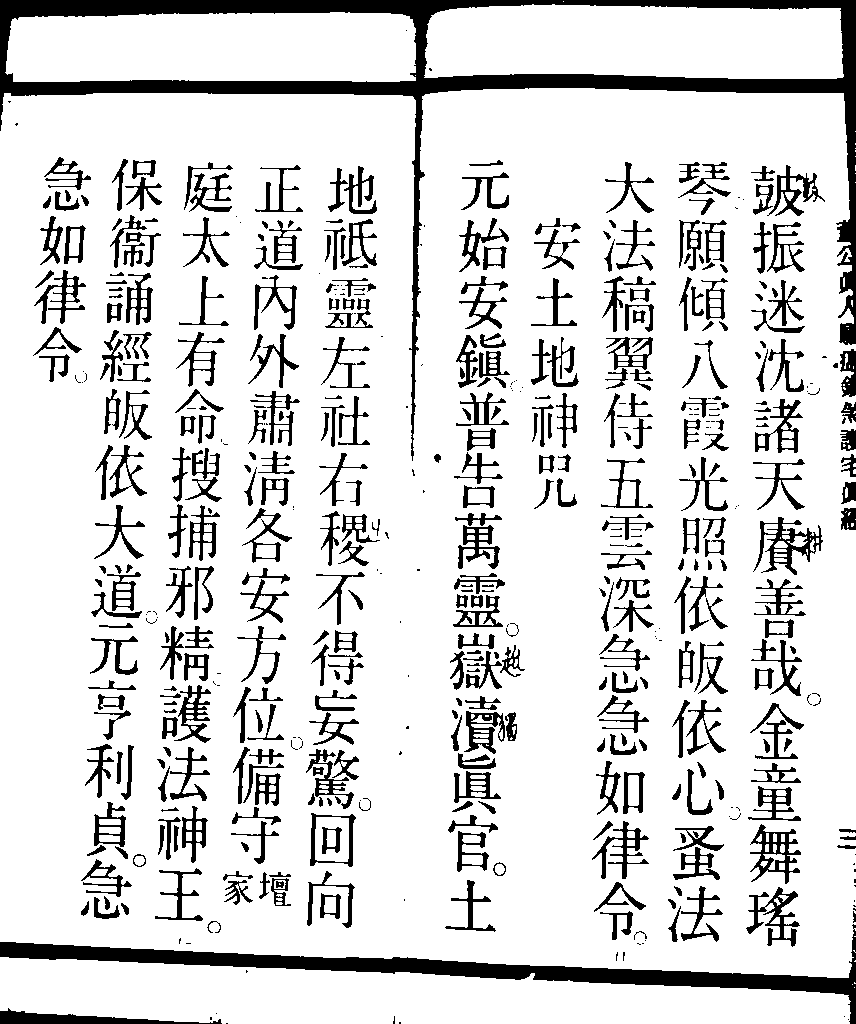 皷振迷沈。諸天賡善哉。金童舞瑤
琴願傾八霞光照依皈依心。蚤法
大法稿翼侍五雲深急急如律令。
安土地神咒
元始安鎭普告萬靈。嶽瀆眞官。土
地祇靈左社右稷不得妄驚。回向
正道內外肅清各安方位。備守壇家
庭太上有命搜捕邪精護法神王。
保衞誦經皈依大道。元亨利貞。急
急如律令。
三